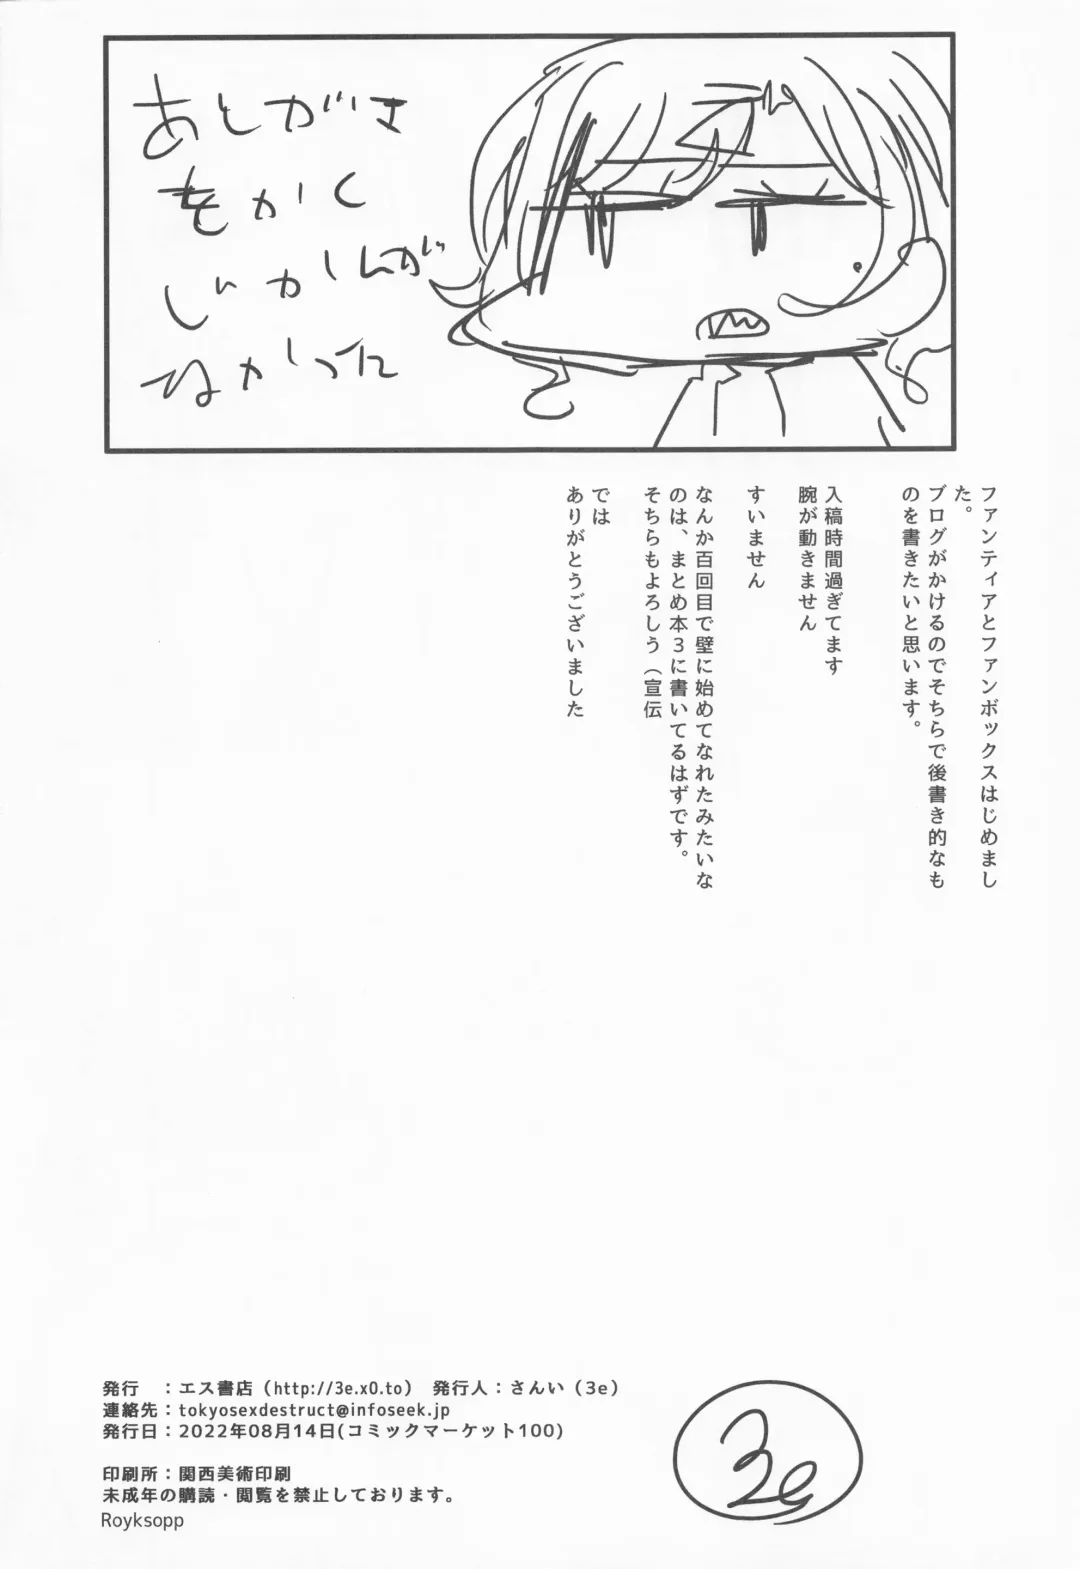 あとがき
をかく
じかんが
なかった
ファンティアとファンボックスはじめまし
た。
ブログがかけるのでそちらで後書き的なも
のを書きたいと思います。
入稿時間過ぎてます
腕が動きません
すいません
なんか百回目で壁に始めてなれたみたいな
のは、まとめ本３に書いてるはずです。
そちらもよろしう（宣伝
では
ありがとうございました
発行　：エス書店（http://3e.x0.to）　発行人：さんい（3e）
連絡先：tokyosexdestruct@infoseek.jp
発行日：2022年08月14日(コミックマーケット100)
印刷所：関西美術印刷
未成年の購読・閲覧を禁止しております。
Royksopp
3e